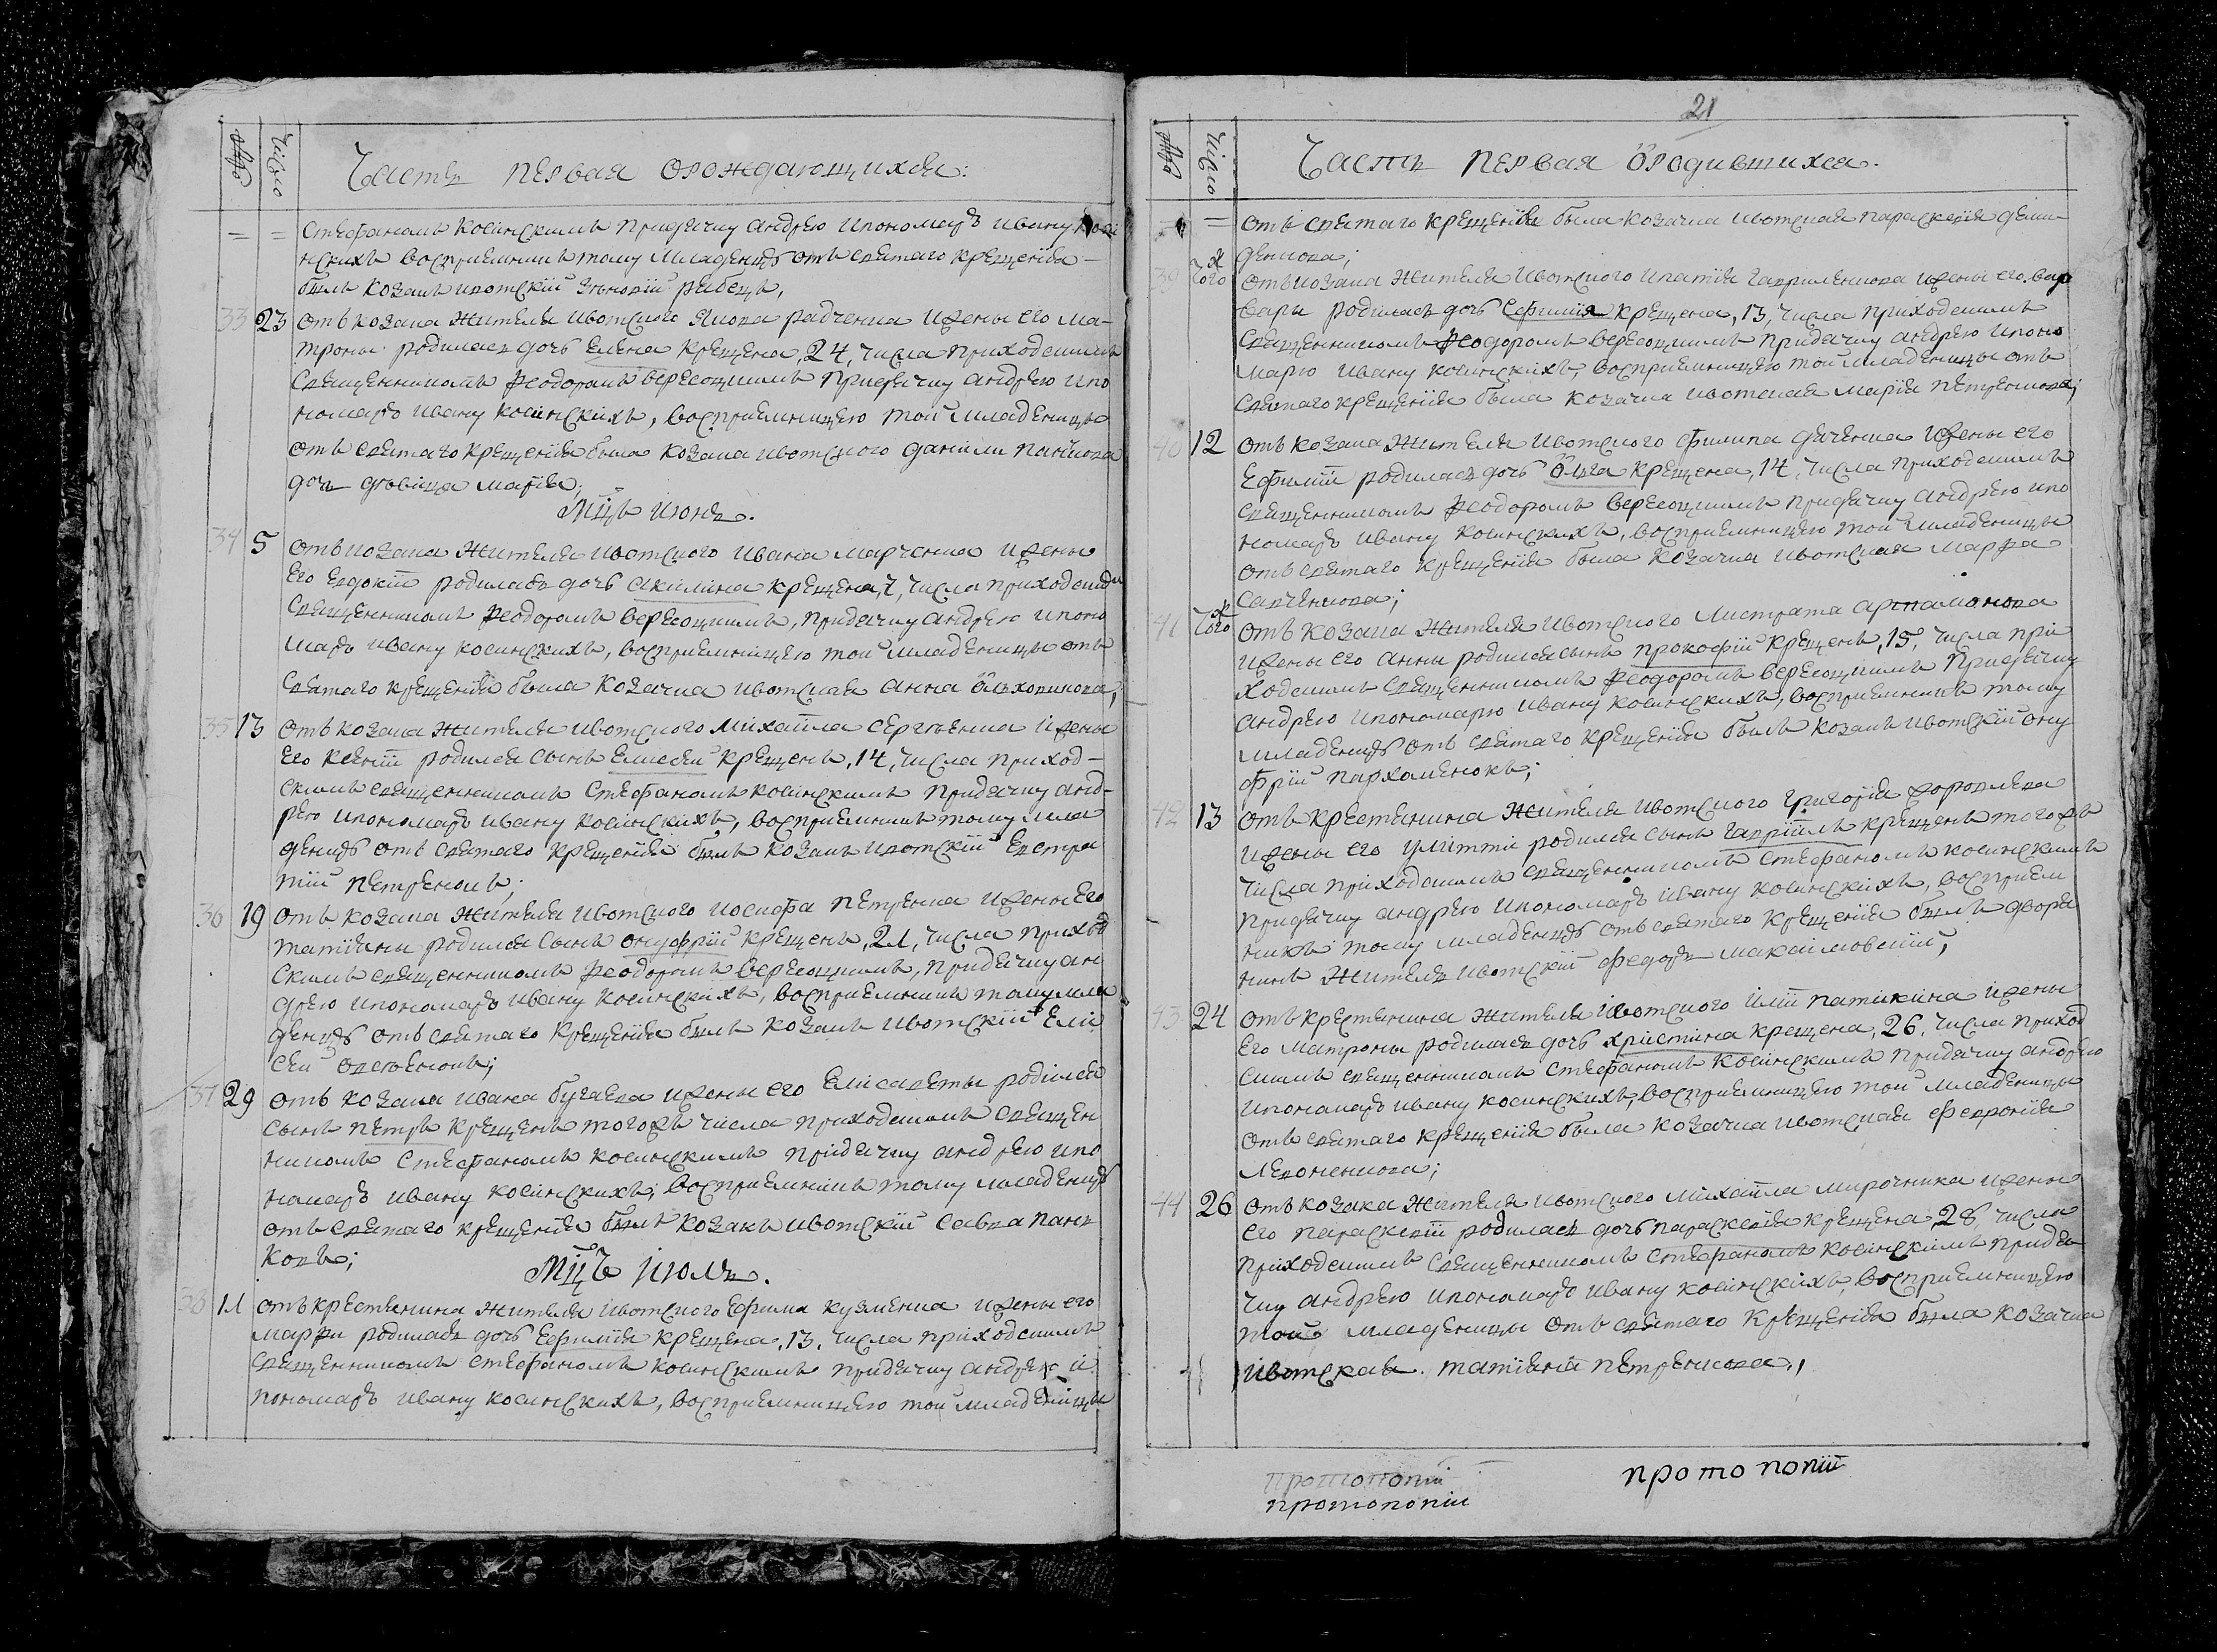 Число
Часть первая орождающихся:
= = Стефаномъ косинскимъ придячку андрею ипономарѣ ивану коси
нскихъ восприемникъ тому младенцѣ отъ святаго крещенія –
былъ козакъ ивотскій зѣновій рибецъ,
33 23 отъ козака жителя ивотского якова радченка ижены его ма-
троны родилась дочь елена крещена, 24, числа приходскимъ
священникомъ Ѳеодоромъ вересоцкимъ придячку андрею ипо
номарѣ ивану косинскихъ, восприемницею той младеницы
отъ святаго крещенія была козака ивотского даніили панкова
дочь дѣвица марія;
Мц͠ъ июнь.
34 5 отъ козака жителя ивотского ивана марченка ижены
его евдокіи родилась дочь акилина крещена, 7, числа приходскимъ
священникомъ Ѳеодоромъ вересоцкимъ, придячку андрею ипоно
марѣ ивану косинскихъ, восприемницею той младеницы отъ
святаго крещенія была козачка ивотская анна
35 13 отъ козака жителя ивотского михаила сергѣенка ижены
его ксеніи родился сынъ елисей крещенъ, 14, числа приход-
скимъ священникомъ Стефаномъ косинскимъ придячку анд-
рею ипономарѣ ивану косинскихъ, восприемникъ тому мла
денцѣ отъ святаго крещенія былъ козакъ ивотскій Евстра
тій петренокъ;
36 19 отъ козака жителя ивотского иосифа петренка ижены его
татіяны родился сынъ онуфрій крещенъ, 21, числа приход
скимъ священникомъ Ѳеодоромъ вересоцкимъ, придячку ан
дрею ипономарѣ ивану косинскихъ, восприемникъ тому мла
денцѣ отъ святаго крещенія былъ козакъ ивотскій Елі
сей
37 29 отъ козака ивана бугаева ижены его Елисаветы родился
сынъ петръ крещенъ тогожъ числа приходскимъ священ
никомъ Стефаномъ косинскимъ придячку андрею ипо
номарѣ ивану косинскихъ; восприемникъ тому младенцѣ
отъ святаго крещенія былъ козакъ ивотскій савва пань
ковъ;
Мц͠ъ июль.
38 11 отъ крестянина жителя ивотского ефима кузменка ижены его
марѳи родилась дочь Ефимія крещена, 13, числа приходскимъ
священникомъ стефаномъ косинскимъ придячку андрею и
пономарѣ ивану косинскихъ, восприемницею той младеницы
21
Число
Часть первая ородившихся.
= отъ святаго крещенія была козачка ивотская параскевія деми-
денкова;
39 Тогож отъ козака жителя ивотского ипатія гавриленкова ижены его вар
вары родилась дочь Ефимия крещена, 13, числа приходскимъ
священникомъ Ѳеодоромъ вересоцкимъ придячку андрею ипоно
марю ивану косинскихъ, восприемницею той младеницы отъ
святаго крещенія была козачка ивотская марія петренкова;
40 12 отъ козака жителя ивотского филипа дяченка ижены его
Ефиміи родилась дочь крещена, 14, числа приходскимъ
священникомъ Ѳеодоромъ вересоцкимъ придячку андрею ипо
номарѣ ивану косинскихъ, восприемницею той младеницы
отъ святаго крещенія была козачка ивотская марѳа
савченкова;
41 Тогож отъ козака жителя ивотского листрата артамонова
ижены его анны родился сынъ прокофій крещенъ, 15, числа при
ходскимъ священникомъ Ѳеодоромъ вересоцкимъ придячку
андрею ипономарю ивану косинскихъ, восприемникъ тому
младенцѣ отъ святаго крещенія былъ козакъ ивотскій ону
фрій пархоменокъ;
42 13 отъ крестянина жителя ивотского григорія
ижены его улиттіи родился сынъ гавріилъ крещенъ тогожъ
числа приходскимъ священникомъ стефаномъ косинскимъ
придячку андрею ипономарѣ ивану косинскихъ, восприем
никъ тому младенцѣ отъ святаго крещенія былъ дворя
нинъ житель ивотскій федоръ макаимовскій;
43 24 отъ крестянина жителя ивотского иліи патикина ижены
его матроны родилась дочь христина крещена, 26, числа приход
скимъ священникомъ стефаномъ косинскимъ придячку андрею
ипономарѣ ивану косинскихъ, восприемницею той младеницы
отъ святаго крещенія была козачка ивотская февронія
44 26 отъ козака жителя ивотского михаила мирочника ижены
его параскевіи родилась дочь параскевія крещена, 28, числа
приходскимъ священникомъ стефаномъ косинскимъ придя
чку андрею ипономарѣ ивану косинскихъ, восприемницею
той младеницы отъ святаго крещенія была козачка
ивотская. татіяна петренкова.,
протопопіи протопопіи
протопопіи